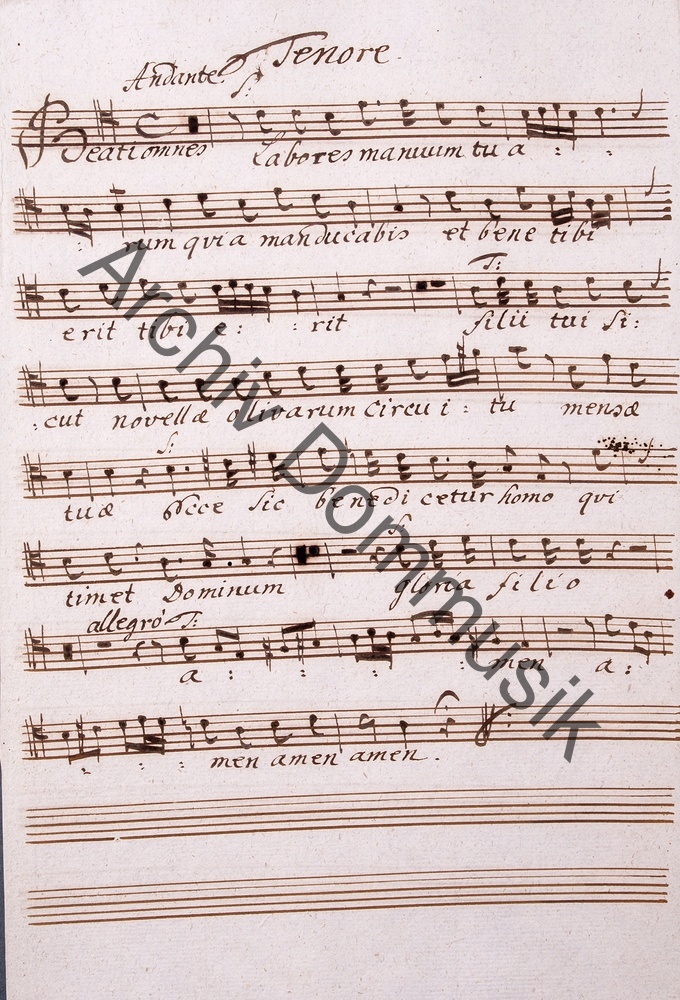 Tenore.
Andante. S:
Beati omnes Labores manuum tu a : :
: rum qvia manducabis et bene tibi
erit tibi e : : rit filii tui si :
T:
: cut novellæ olivarum circu i : tu mensæ
S:
tuæ Ecce sic benedi cetur homo qvi
S:
timet Dominum gloria filio
allegro T:
a : : : men a :
: : : men amen amen .
Archiv Dommusik